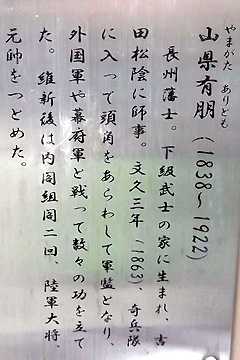 やまがた ありとも
山県有朋（1838〜1922）
長州藩士。下級武士の家に生まれ、吉
田松陰に師事。文久三年（1863）、奇兵隊
に入って頭角をあらわして軍監となり、
外国軍や幕府軍と戦って数々の功を立て
た。維新後は内閣組閣二回、陸軍大将、
元帥をつとめた。